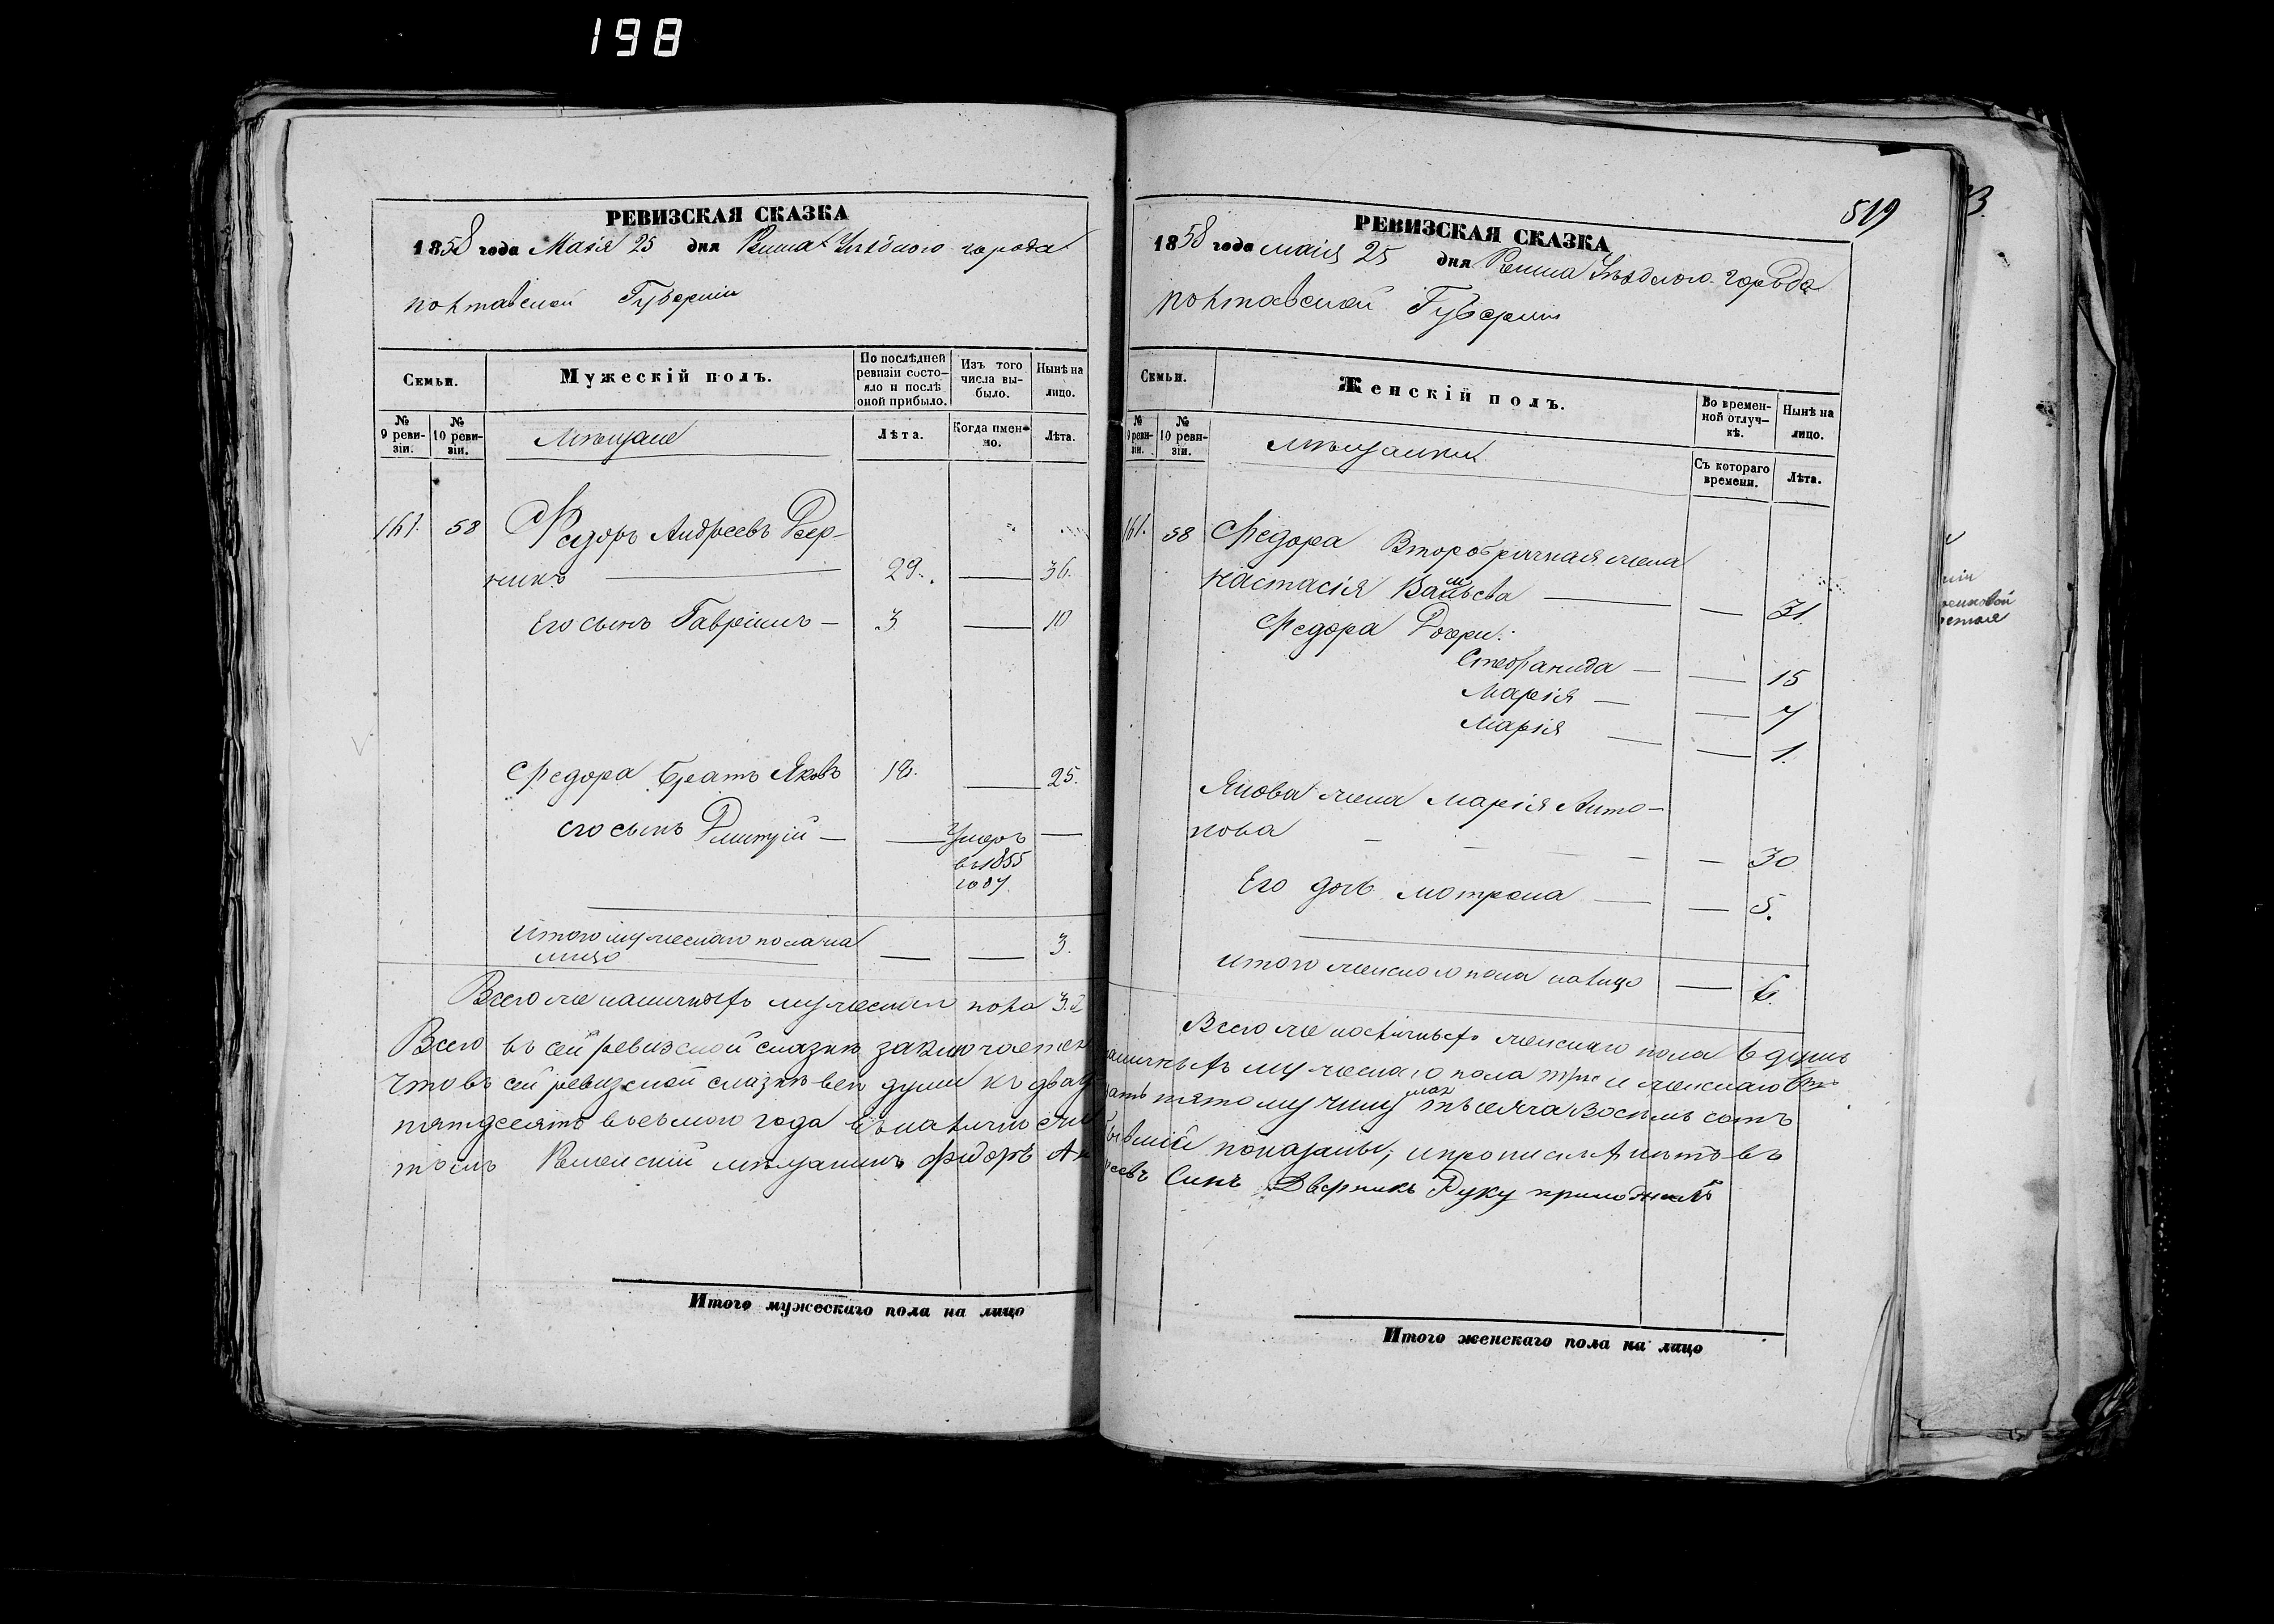 198
РЕВИЗСКАЯ СКАЗКА
1858 года Маія 25 дня Ромна Уѣзднаго города
Полтавской Губерніи
Семьи.
Мужескій полъ.
По послѣдней ревизіи состояло и послѣ оной прибыло.
Изъ того числа выбыло.
Нынѣ на лицо.
№ 9 ревизіи.
№ 10 ревизіи.
Мѣщане
Лѣта.
Когда именно.
Лѣта.
161. 58 Федоръ Андреевъ Двер-
никъ — 29. — 36.
Его сынъ Гавріилъ — 3. — 10
Федора братъ Яковъ 18. — 25.
его сынъ Дмитрій — — Умеръ —
въ 1855
году.
Итого мужескаго пола на
лицо — — 3.
Всего же наличныхъ мужескаго пола 3.
Всего въ сей ревизской сказкѣ заключается
Что въ сей ревизской сказкѣ всѣ души къ двад
пятдесятъ восьмого года въ
Роменскій мѣщанинъ Федоръ Ан
Итого мужескаго пола на лицо
519
РЕВИЗСКАЯ СКАЗКА
1858 года маія 25 дня Ромна Уѣзднаго города
Полтавской Губерніи
Семьи.
Женскій полъ.
Во временной отлучкѣ.
Нынѣ на лицо.
№ 9 ревизіи.
№ 10 ревизіи.
мѣщанки
Съ котораго времени.
Лѣта.
161. 58 Федора Второбрачная жена
Настасія — — 31.
Федора Дочери:
Стефанида — — 15
Марія — — 7
Марія — — 1.
Якова жена Марія Анто-
нова — — 30
Его дочь Мотрона — — 5.
Итого женскаго пола налицо — 6.
Всего же наличныхъ женскаго пола 6 душъ
наличныхъ мужескаго пола три и женскаго
цать пятому числу мая тысяча восемь сотъ
показаны, и прописныхъ нѣтъ въ
реевъ Синъ Дверникъ Руку приложилъ
Итого женскаго пола на лицо